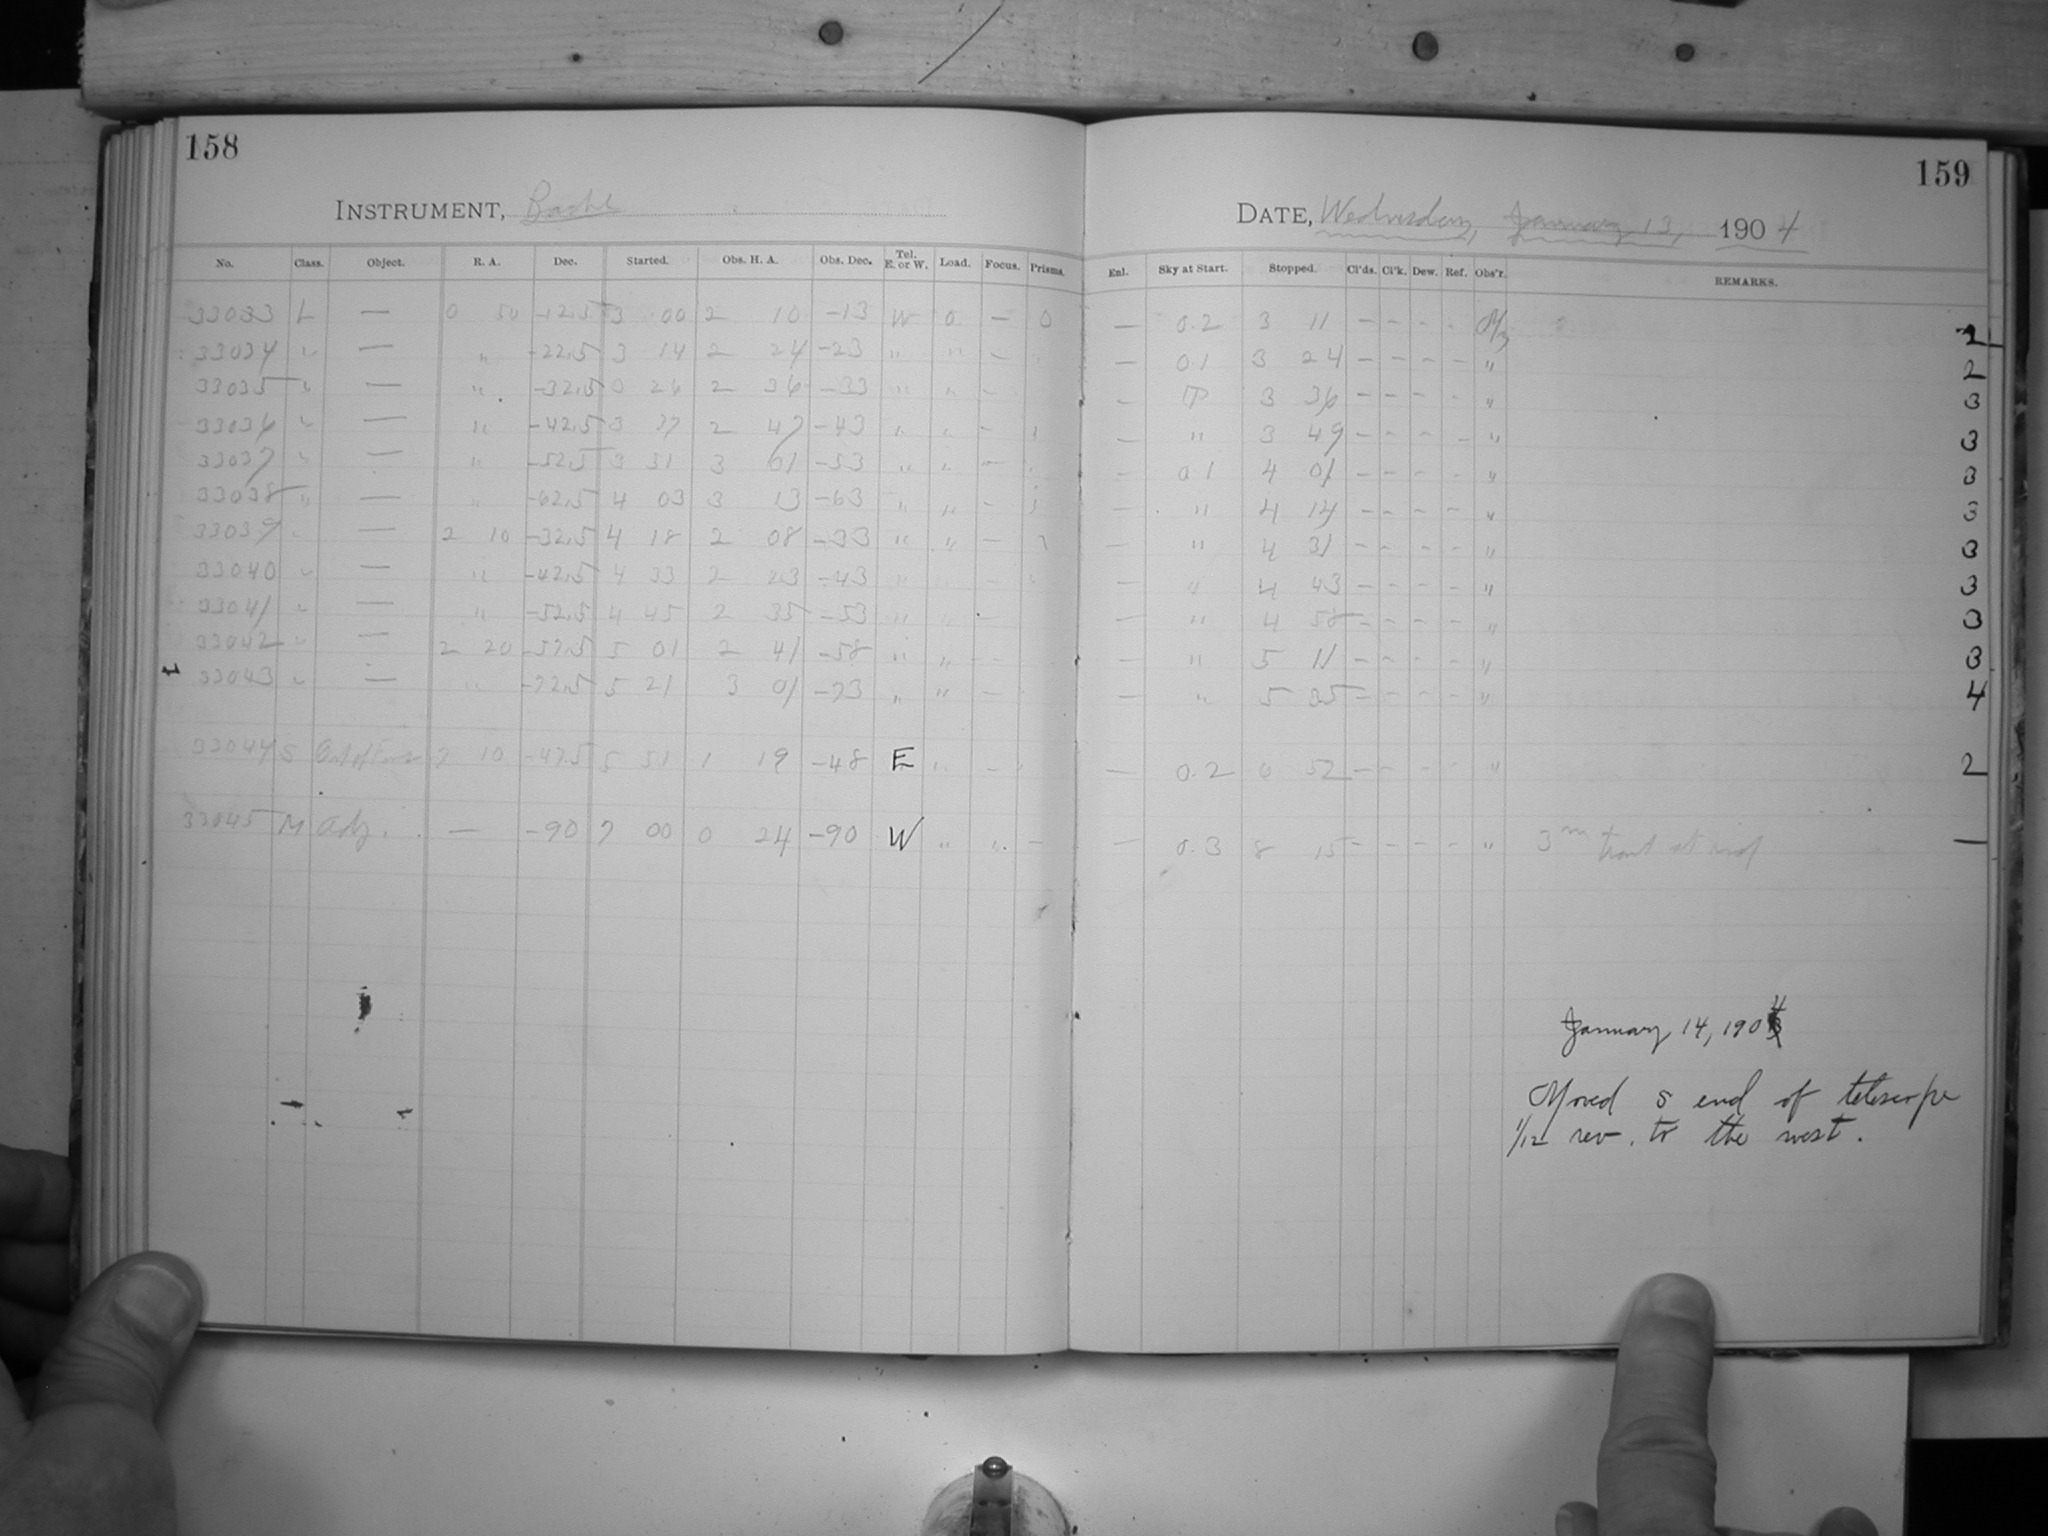 158
INSTRUMENT, Bache
No. Class. Object. R. A. Dec. Started. Obs. H. A. Obs. Dec. Tel. E. or W. Load. Focus. Prisms.
33033 L — 0 50 -12.5 3 00 2 10 -13 W 0 — 0
33034 " — " -22.5 3 14 2 24 -23 " " —
33035 " — " -32.5 3 26 2 36 -33 " " —
33036 " — " -42.5 3 37 2 47 -43 " " —
33037 " — " -52.5 3 51 3 01 -53 " " —
33038 " — " -62.5 4 03 3 13 -63 " " —
33039 " — 2 10 -32.5 4 18 2 08 -33 " " —
33040 " — " -42.5 4 33 2 23 -43 " " —
33041 " — " -52.5 4 45 2 35 -53 " "
33042 " — 2 20 -57.5 5 01 2 41 -58 " " —
33043 " — " -72.5 5 21 3 01 -73 " " —
33044 S 7 10 -47.5 5 51 1 19 -48 E " —
33045 M Adj. — -90 7 00 0 24 -90 W " " —
159
DATE, Wednesday, January 13, 1904
Enl. Sky at Start. Stopped. Cl'ds. Cl'k. Dew. Ref. Obs'r. REMARKS.
— 0.2 3 11 — — — — 2
— 0.1 3 24 — — — — " 2
— 3 36 — — — — " 3
— " 3 49 — — — — " 3
— 0.1 4 01 — — — — " 3
— " 4 14 — — — — " 3
— " 4 31 — — — — " 3
— " 4 43 — — — — " 3
— " 4 58 — — — — " 3
— " 5 11 — — — — " 3
— " 5 35 — — — — " 4
— 0.2 6 52 — — — — " 2
— 0.3 8 15 — — — — " 3m trail at end —
January 14, 1904
Moved S end of telescope
1/12 rev. to the west.